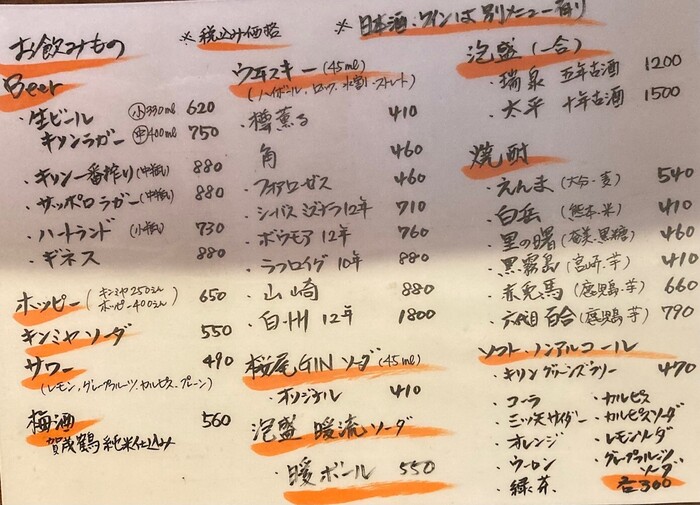 お飲みもの
※税込み価格
※日本酒・ワインは別メニュー有り
Beer
・生ビール ㊙小330ml 620
キリンラガー 中400ml 750
・キリン一番搾り(中瓶) 880
・サッポロラガー(中瓶) 880
・ハートランド (小瓶) 730
・ギネス 880
ホッピー(キンミヤ250ミん ホッピー400ミん) 650
キンミヤソーダ 550
サワー 490
(レモン、グレープフルーツ、カルピス、プレーン)
梅酒 560
賀茂鶴純米仕込み
ウイスキー(45ml)
(ハイボール、ロック、水割、ストレート)
・樽薫る 410
角 460
・フォアローゼス 460
・シーバスミズナラ12年 710
・ボウモア 12年 760
・ラフロイグ 10年 880
・山崎 880
・白州 12年 1800
桜尾GINソーダ(45ml)
・オリジナル 410
泡盛 暖流ソーダ
・暖ボール 550
泡盛(一合)
・瑞泉 五年古酒 1200
・太平 十年古酒 1500
焼酎
・えんま(大分・麦) 540
・白岳(熊本・米) 410
・里の曙(奄美・黒糖) 460
・黒霧島(宮崎・芋) 410
・赤兎馬(鹿児島・芋) 660
・六代目百合(鹿児島・芋) 790
ソフト・ノンアルコール
・キリングリーンズフリー 470
・コーラ
・三ツ矢サイダー
・オレンジ
・ウーロン
・緑茶
・カルピス
・カルピスソーダ
・レモンソーダ
・グレープフルーツソーダ
各300